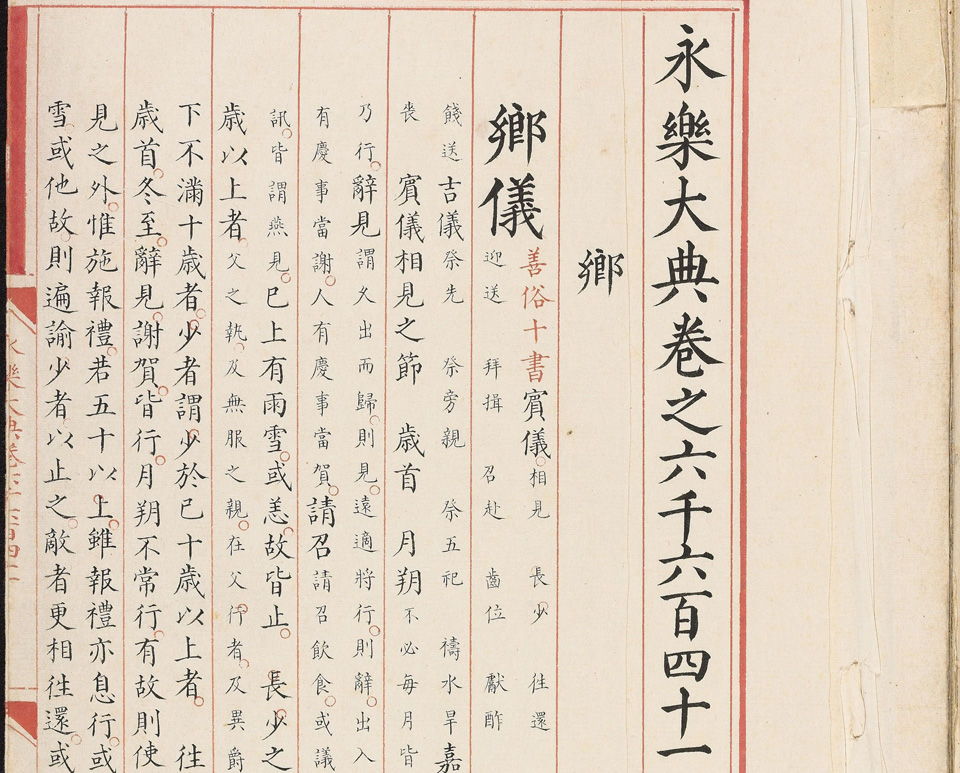 永樂大典卷之六千六百四十一
鄉
鄉儀 善俗十書 賓儀 相見 長少 往還
迎送 拜揖 召赴 齒位 獻酢
餞送 吉儀 祭先 祭旁親 祭五祀 禱水旱 嘉
喪 賓儀相見之節 歲首 月朔 不必每月皆
乃行 辭見 謂久出而歸則見遠適將行則辭出入
有慶事當謝人有慶事當賀 請召 請召飲食或議
訊皆謂燕見 已上有雨雪或恙故皆止 長少之
歲以上者 父之執及無服之親在父行者及異爵
下不滿十歲者少者謂少於己十歲以上者 往
歲首冬至辭見謝賀皆行月朔不常行有故則使
見之外惟施報禮若五十以上雖報禮亦息行或
雪或他故則遍諭少者以止之敵者更相往還或